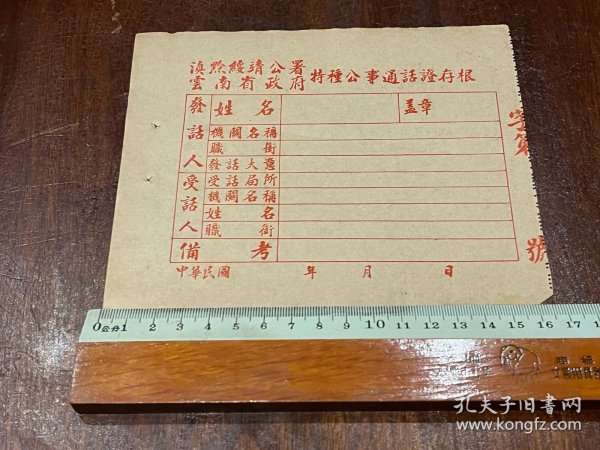 滇黔綏靖公署
雲南省政府
特種公事通話證存根
發話人
姓名
蓋章
機關名稱
職銜
發話大意
受話局所
受話人
機關名稱
姓名
職銜
備考
中華民國 年 月 日
字第
號
0公分1 2 3 4 5 6 7 8 9 10 11 12 13 14 15 16 17
孔夫子旧书网
www.kongfz.com